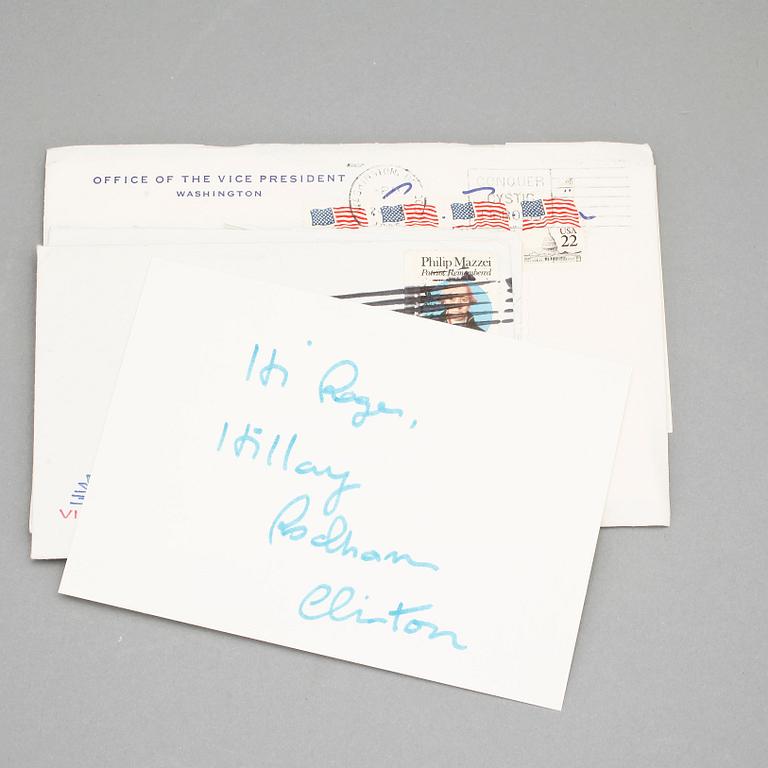 OFFICE OF THE VICE PRESIDENT
WASHINGTON
CONQUER
CYSTIC
USA
22
Philip Mazzei
Patriot Remembered
Hi Roger,
Hillary
Rodham
Clinton
VI